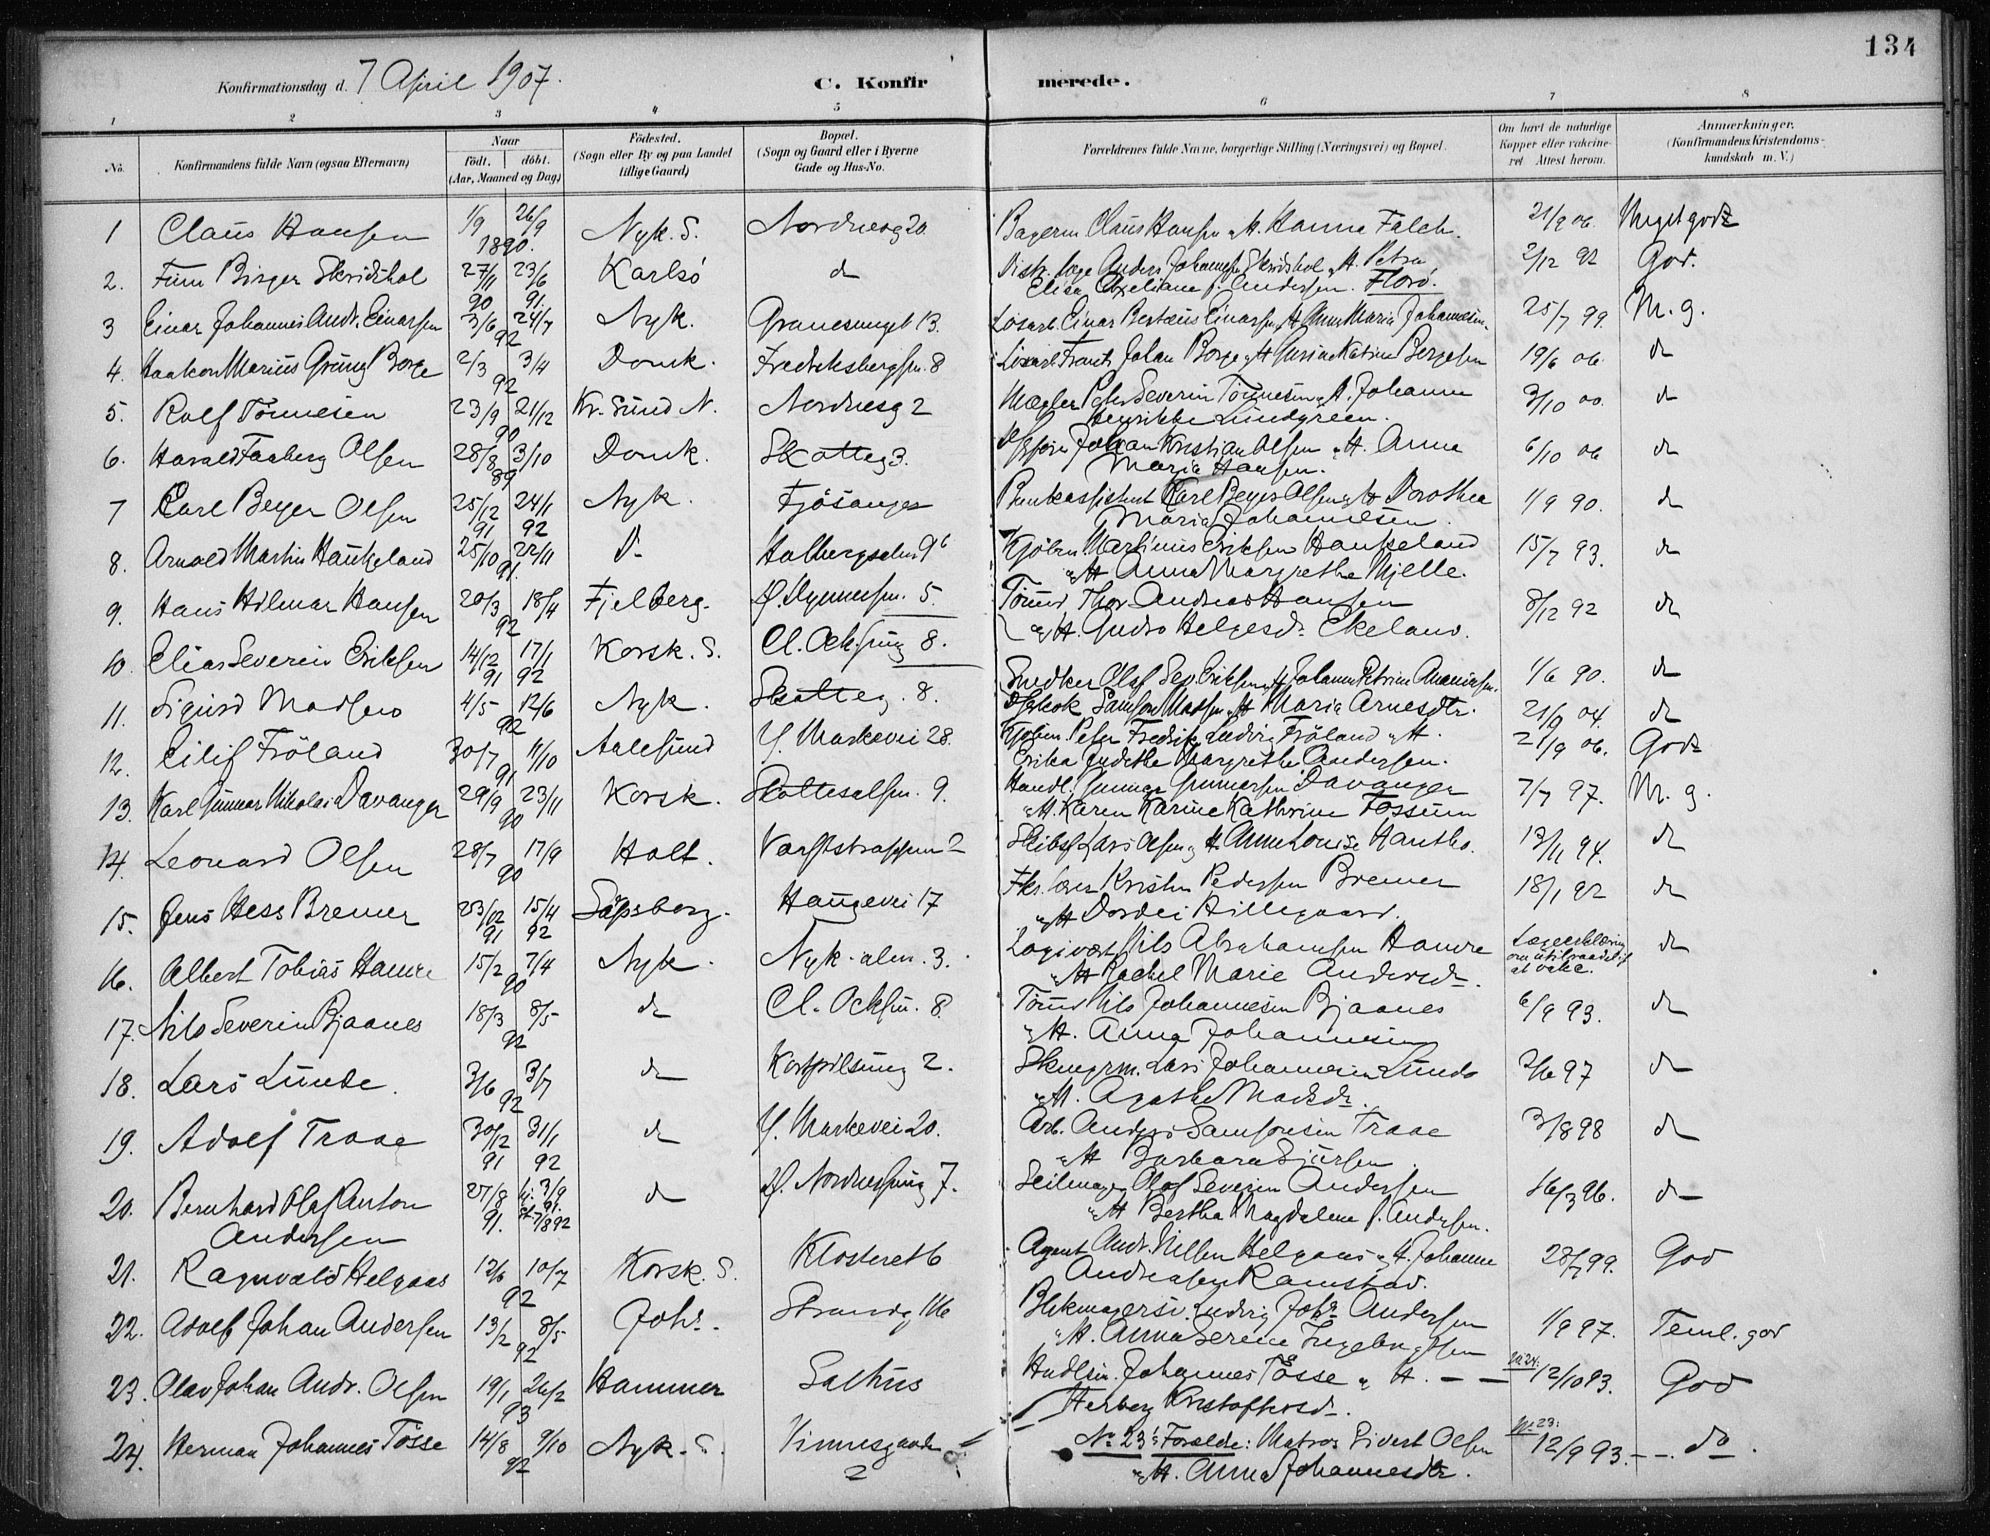 134
Konfirmationsdag d. 7 April 1907.
C. Konfirmerede.
1 2 3 4 5 6 7 8
No. Konfirmandens fulde Navn (ogsaa Efternavn) Naar født. døbt. (Aar, Maaned og Dag) Födested. (Sogn eller By og paa Landet tillige Gaard) Bopæl. (Sogn og Gaard eller i Byerne Gade og Hus-No. Forældrenes fulde Navne, borgerlige Stilling (Næringsvei) og Bopæl. Om havt de naturlige Kopper eller vaccineret Attest herom. Anmærkninger. (Konfirmandens Kristendomskundskab m. V.)
1 Claus Hansen 1/9 26/9 1890. Nyk. S. Nordnesg 20 Bagerm Claus Hansen H. Hanna Falch. 21/9 06. Meget godt
2. Finn Birger Skridshol 27/11 90 23/6 91. Karlsö do Distr. læge Anders Johannesen Skridshol H. Petra
Elisa f. Andersen. Florö. 2/12 92 God.
3 Einar Johannes Andr. Einarsen 3/6 24/7 92 Nyk. 13. Losarb Einar Einarsen H Anna Maria Johannesen. 25/7 99. M. g.
4. Haakon Marius Grung Borge 2/3 3/4 92 Domk. Fredriksbergsm. 8 Losarb Frants Johan Borge H Katrine Bergesen 19/6 06. do
5. Rolf Tönnesen 23/9 21/12 90 Kr. Sund N. Nordnesg 2 Mægler Peter Severin Tönnesen H. Johanna
Henrikke Lundgreen. 3/10 00. do
6. Harald Faaberg Olsen 28/8 3/10 89 Domk. Skotteg 3. Johan Kristian Olsen H. Anna
Maria Hansen. 6/10 06 do
7 Carl Beyer Olsen 25/12 91 24/1 92 Nyk. Fjösanger Bankassistent Karl Beyer Olsen H Dorothea
Maria Johannesen. 1/9 90. do
8. Arnold Martin Haukeland 25/10 22/11 91. Do Kjöbm Martinus Eriksen Haukeland
H Anna Margrethe Mjelle. 15/7 93. do
9. Hans Hilmar Hansen 20/3 18/4 92 Fjelberg. 5. Tömm Thor Andreas Hansen
H. Helgesdr Ekeland. 8/12 92 do
10. Elias Severin Eriksen 14/12 91 17/1 92 Korsk. S. Cl. Ock. smug 8. Snedker Olaf Sev. Eriksen H Johanna Petrine 1/6 90. do
11. Sigurd Madsen 4/5 12/6 92 Nyk. Skotteg. 8. Samson Madsen H Maria Arnesdtr. 21/9 04. do
12. Eilif Fröland 30/7 11/10 91 Aalesund Y. Markevei 28. Kjöbm. Peter Fredrik Ludvig Fröland H.
Erika Judithe Margrethe Andersen. 21/9 06. Godt
13. Karl Gunnar Nikolai Davanger 29/9 23/11 90 Korsk. Skottesalm. 9. Handl. Gunnar Gunnarsen Davanger
H. Karen Karine Kathrine Fossum 7/7 97. M. g.
14. Leonard Olsen 28/7 17/9 90 Holt. 2 Lars Olsen H Anne Louise 13/11 94. do
15. Jens Hess Bremer 23/12 91 15/4 92 Sarpsborg. Haugevei 17 Kristen Pedersen Bremer
H Dordei Hillegaard. 18/1 92 do
16. Albert Tobias Hamre 15/2 7/4 90 Nyk. Nyk. alm. 3. Logivært Nils Abrahamsen Hamre
H Rachel Marie Andersdr. Lægeerklæring om utilraadelig at vakc. do
17. Nils Severin Bjaanes 18/3 8/5 92 do Cl. Ocksm. 8 Tömm Nils Johannesen Bjaanes
H. Anna Johannesen 6/9 93. do
18. Lars Lunde. 3/6 3/7 92 do Korspilsmug 2. Skmgrm. Lars Johannesen Lunde
H. Agathe Madsdr. 2/6 97 do
19. Adolf Traae 30/12 91 31/1 92 do Y. Markevei 20. Arb. Anders Samsonsen Traae
H Barbara Sjursen. 3/8 98 do
20. Bernhard Olaf Anton
Andersen 27/8 91. hj. 3/9 91. st. 7/8 92 do Nordnessmug 7. Seilmager Olaf Severin Andersen
H Bertha Magdalene f. Andersen. 16/3 96. do
21. Ragnvald Helgaas 12/6 10/7 92 Korsk. S. Klosteret 6 Agent Andr. Nilsen Helgaas H. Johanne
Andreasen Ramstad. 28/7 99. God
22. Adolf Johan Andersen 13/2 8/5 92 Johs. Strandg 116 Blikmagersv. Ludvig Johs Andersen
H. Anna Serine Ingebrigtsen 1/9 97. Teml. god
23. Olav Johan Andr. Olsen 19/1 26/2 93 Hammer Salhus Handlm. Johannes Tösse H. — —
Herborg Kristoffersdr. No 24: 12/10 93. God
24. Herman Johannes Tösse 14/8 9/10 92 Nyk. S. Vinnesgaarden 2 No 23's Forældre: Matros Sivert Olsen
H. Anna Johannesdtr. No 23: 12/9 93. - -. do.